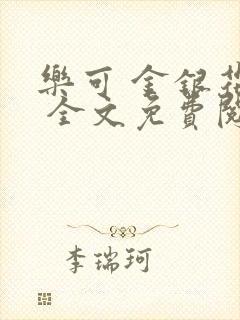 樂可 金銀花
全文免費閱
李瑞珂